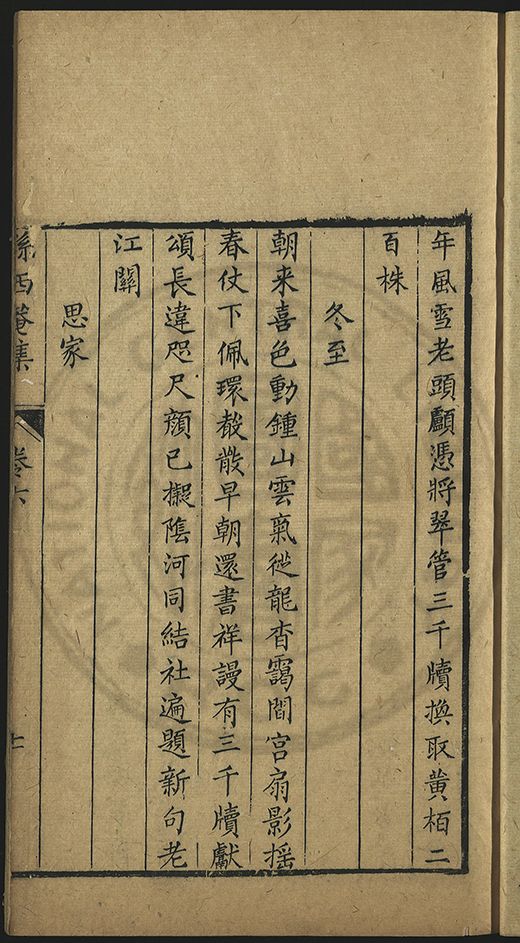 年風雪老頭顱憑將翠管三千牘換取黄栢二
百株
冬至
朝来喜色動鍾山雲氣從龍杳靄間宫扇影揺
春仗下佩環散早朝還書祥謾有三千牘獻
頌長違咫尺顔已擬隂河同結社遍題新句老
江關
思家
孫西菴集
卷六